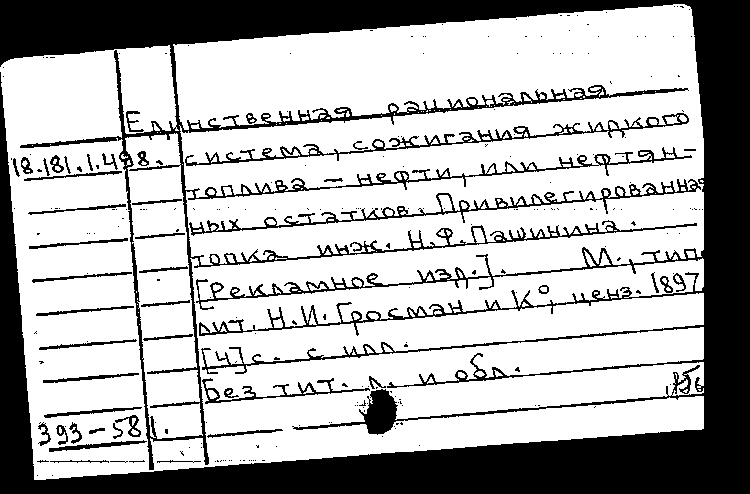 Единственная рациональная
18.181.1.498. система, сожигания жидкого
топлива – нефти, или нефтян-
ных остатков. Привилегированная
топка инж. Н.Ф. Пашинина.
[Рекламное изд.]. М., типо
лит. Н.И. Гросман и К°, ценз. 1897.
[4] с. с илл.
Без тит. л. и обл.
393–581.